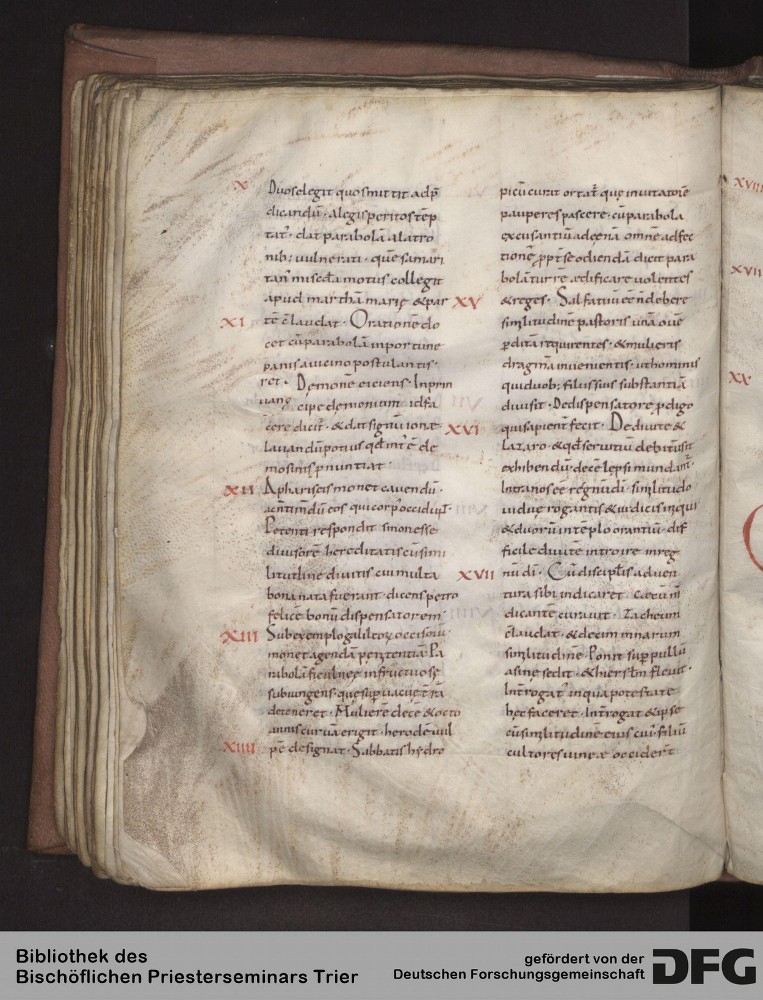 X Duos elegit quos mittit ad p̄
dicandū · A legis perito tēp
tat᷒ · dat parabolā a latro
nib; uulnerati · quē samari
tan᷒ miscd̄a motus collegit
apud marthā marię & par
XI tē c̄laudat · Oratione do
cet cū parabolā inportune
panis a uicino postulantis ·
Demonē eiciens · In prin
cipe demonium id fa
cere dicit᷒ · & dat signū ionae
lauandū potius qd̄ int᷒ ē ele
mosinis p̄nuntiat ·
XII A phariseis monet cauendū ·
eos qui corp᷒ occidunt ·
Petenti respondit se non esse
diuisorē hereditatis cū simi
litudine diuitis cui multa
bona nata fuerant · dicens petro
felicē bonū dispensatorem ·
XIII Sub exemplo galileoꝝ occisoꝝ
monet agendā penitentiā Pa
rabolā ficulneę infructuosę
subiungens · quę sup̄uacue t̄rā
detineret · Mulierē decē & octo
annis curuā erigit · herodē uul
XIIII pē designat · Sabbatis hydro
picū curat ortat᷒ quę inuitatore
pauperes pascere · cū parabola
excusantiū ad cenā omnē adfec
tionē ꝓpt̄ se odiendā dicit para
bolā turrē aedificare uolentes
XV & reges · Sal fatuū eē n̄ debere
similitudinē pastoris unā ouē
ꝑdita requirentes · & mulieris
dragmā inuenientis · ut hominis
qui duob; filiis suis substantiā
diuisit · De dispensatore ꝑdigo
XVI qui sapient᷒ fecit · De diuite &
lazaro & qd̄ seruitiū debitū sit
exhibendū · decē lepsi mundant᷒
Intra nos eē regnū dī · similitudo
uiduę rogantis & iudicis iniqui
& duorū in tēplo orantiū · dif
ficile diuite introire in reg
XVII nū dī · Cū discipl̄is aduen
tura sibi indicaret · caecum
dicante curauit · Zacheum
c̄laudat · & decem mnarum
similitudinē · Ponit sup̄ pullū
asinę sedit · & hierlm̄ fleuit ·
Int̄rogat᷒ in qua potestate
hęc faceret · Int̄rogat & ipse
cū similitudine eius cui᷒ filiū
cultores uineae occidert̄
XVIII
XX ·
Bibliothek des
Bischöflichen Priesterseminars Trier
gefördert von der
Deutschen Forschungsgemeinschaft
DFG